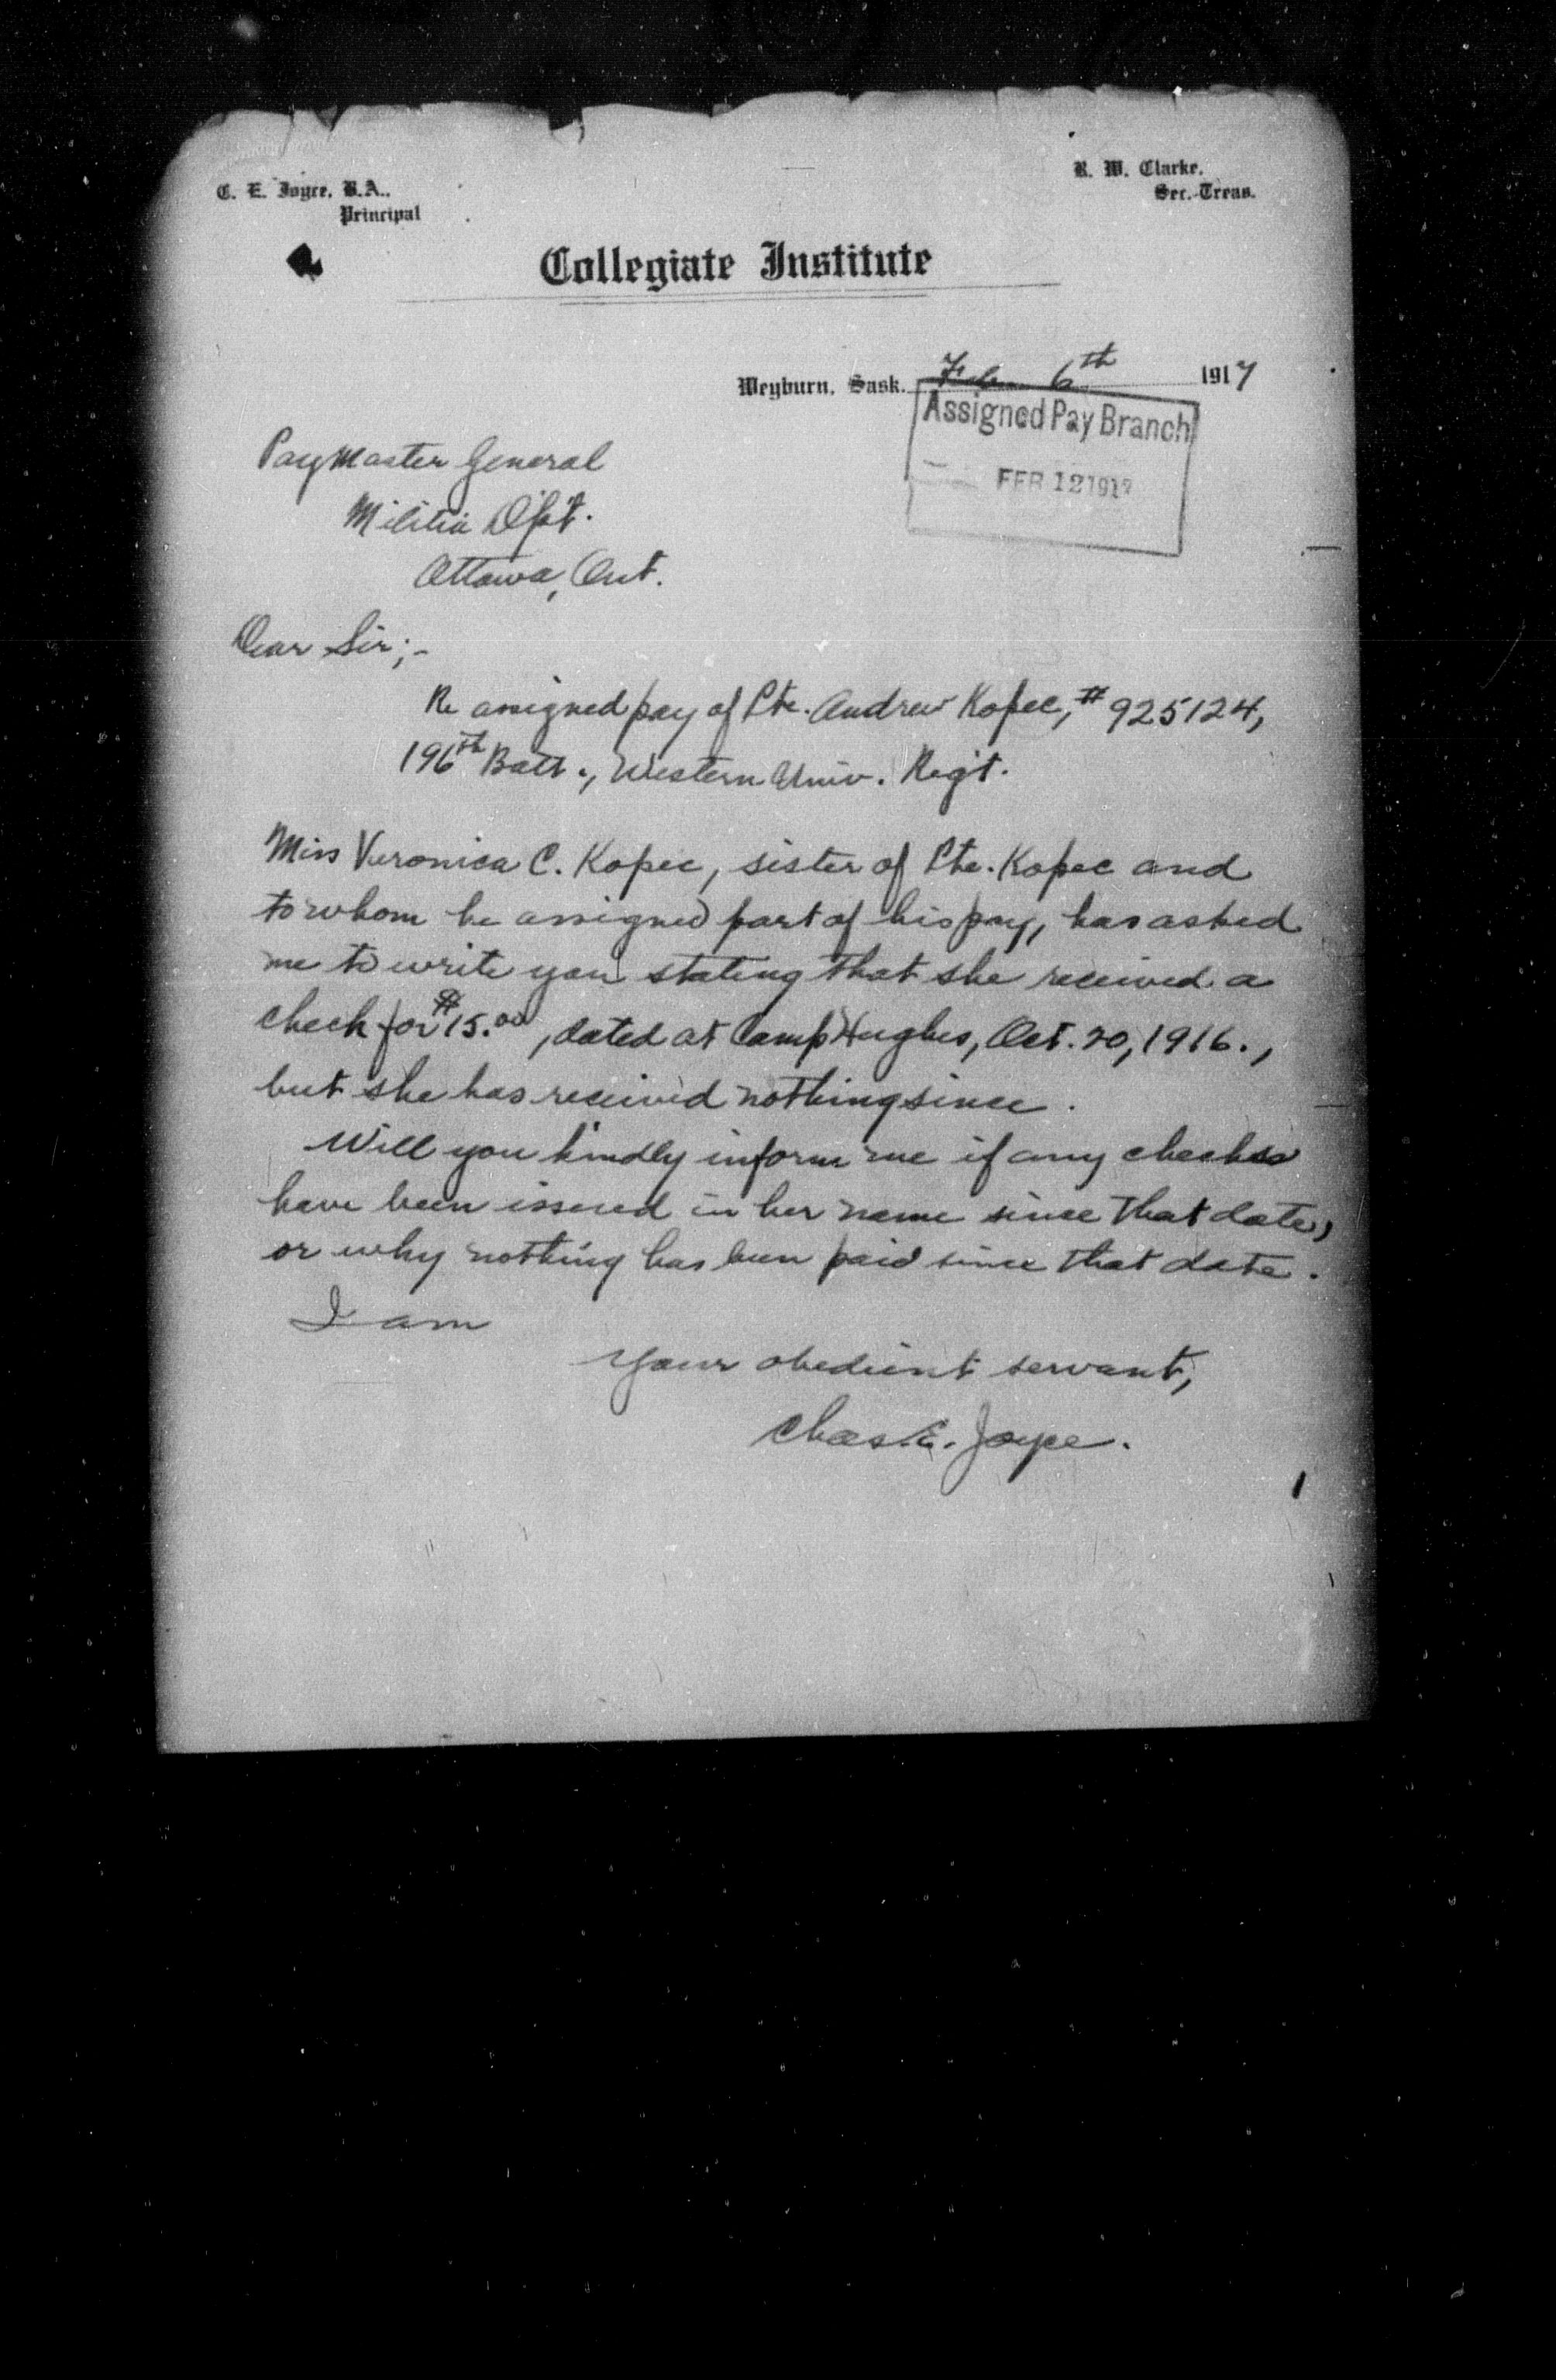 C. E. Joyce, B.A.,
Principal
R. W. Clarke,
Sec.-Treas.
Collegiate Institute
Weyburn, Sask. Feb 6th 1917
Assigned Pay Branch
FEB 12 1917
Paymaster General
Militia Dp't.
Ottawa, Ont.
Dear Sir;-
Re assigned pay of Pte. Andrew Kopec, # 925124,
196th Batt., Western Univ. Reg't.
Miss Veronica C. Kopec, sister of Pte. Kopec and
to whom he assigned part of his pay, has asked
me to write you stating that she received a
check for $15.00, dated at Camp Hughes, Oct. 20, 1916.,
but she has received nothing since.
Will you kindly inform me if any checks
have been issued in her name since that date,
or why nothing has been paid since that date.
I am
Your obedient servant,
Chas. E. Joyce.